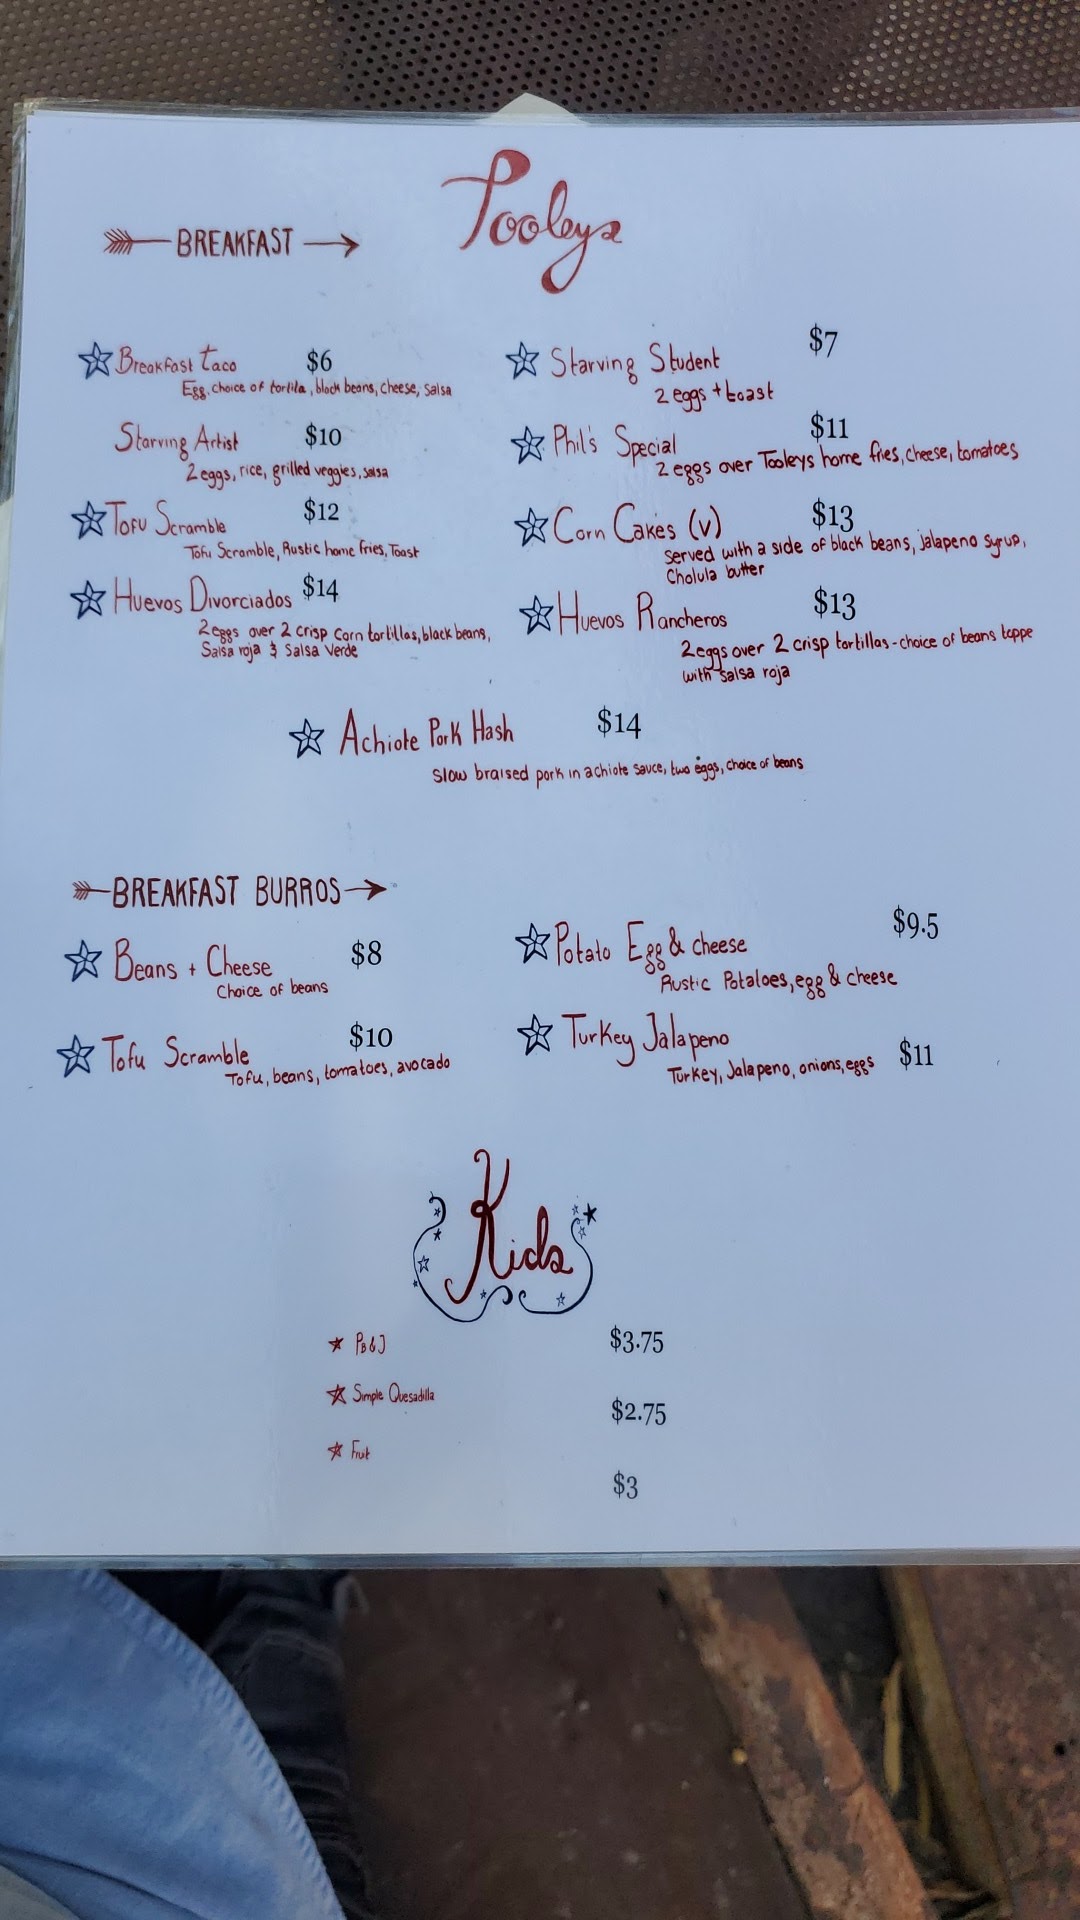 Tooleys
BREAKFAST
Breakfast Taco $6
Egg, choice of tortila, black beans, cheese, salsa
Starving Artist $10
2 eggs, rice, grilled veggies, salsa
Tofu Scramble $12
Tofu Scramble, Rustic home fries, Toast
Huevos Divorciados $14
2 eggs over 2 crisp corn tortillas, black beans,
Salsa roja & Salsa Verde
Starving Student $7
2 eggs + toast
Phil's Special $11
2 eggs over Tooleys home fries, cheese, tomatoes
Corn Cakes (v) $13
Served with a side of black beans, jalapeno syrup,
Cholula butter
Huevos Rancheros $13
2 eggs over 2 crisp tortillas - choice of beans toppe
with salsa roja
Achiote Pork Hash $14
Slow braised pork in achiote sauce, two eggs, choice of beans
BREAKFAST BURROS
Beans + Cheese $8
Choice of beans
Tofu Scramble $10
Tofu, beans, tomatoes, avocado
Potato Egg & cheese $9.5
Rustic Potatoes, egg & cheese
Turkey Jalapeno
Turkey, Jalapeno, onions, eggs $11
Kids
PB&J $3.75
Simple Quesadilla $2.75
Fruit $3